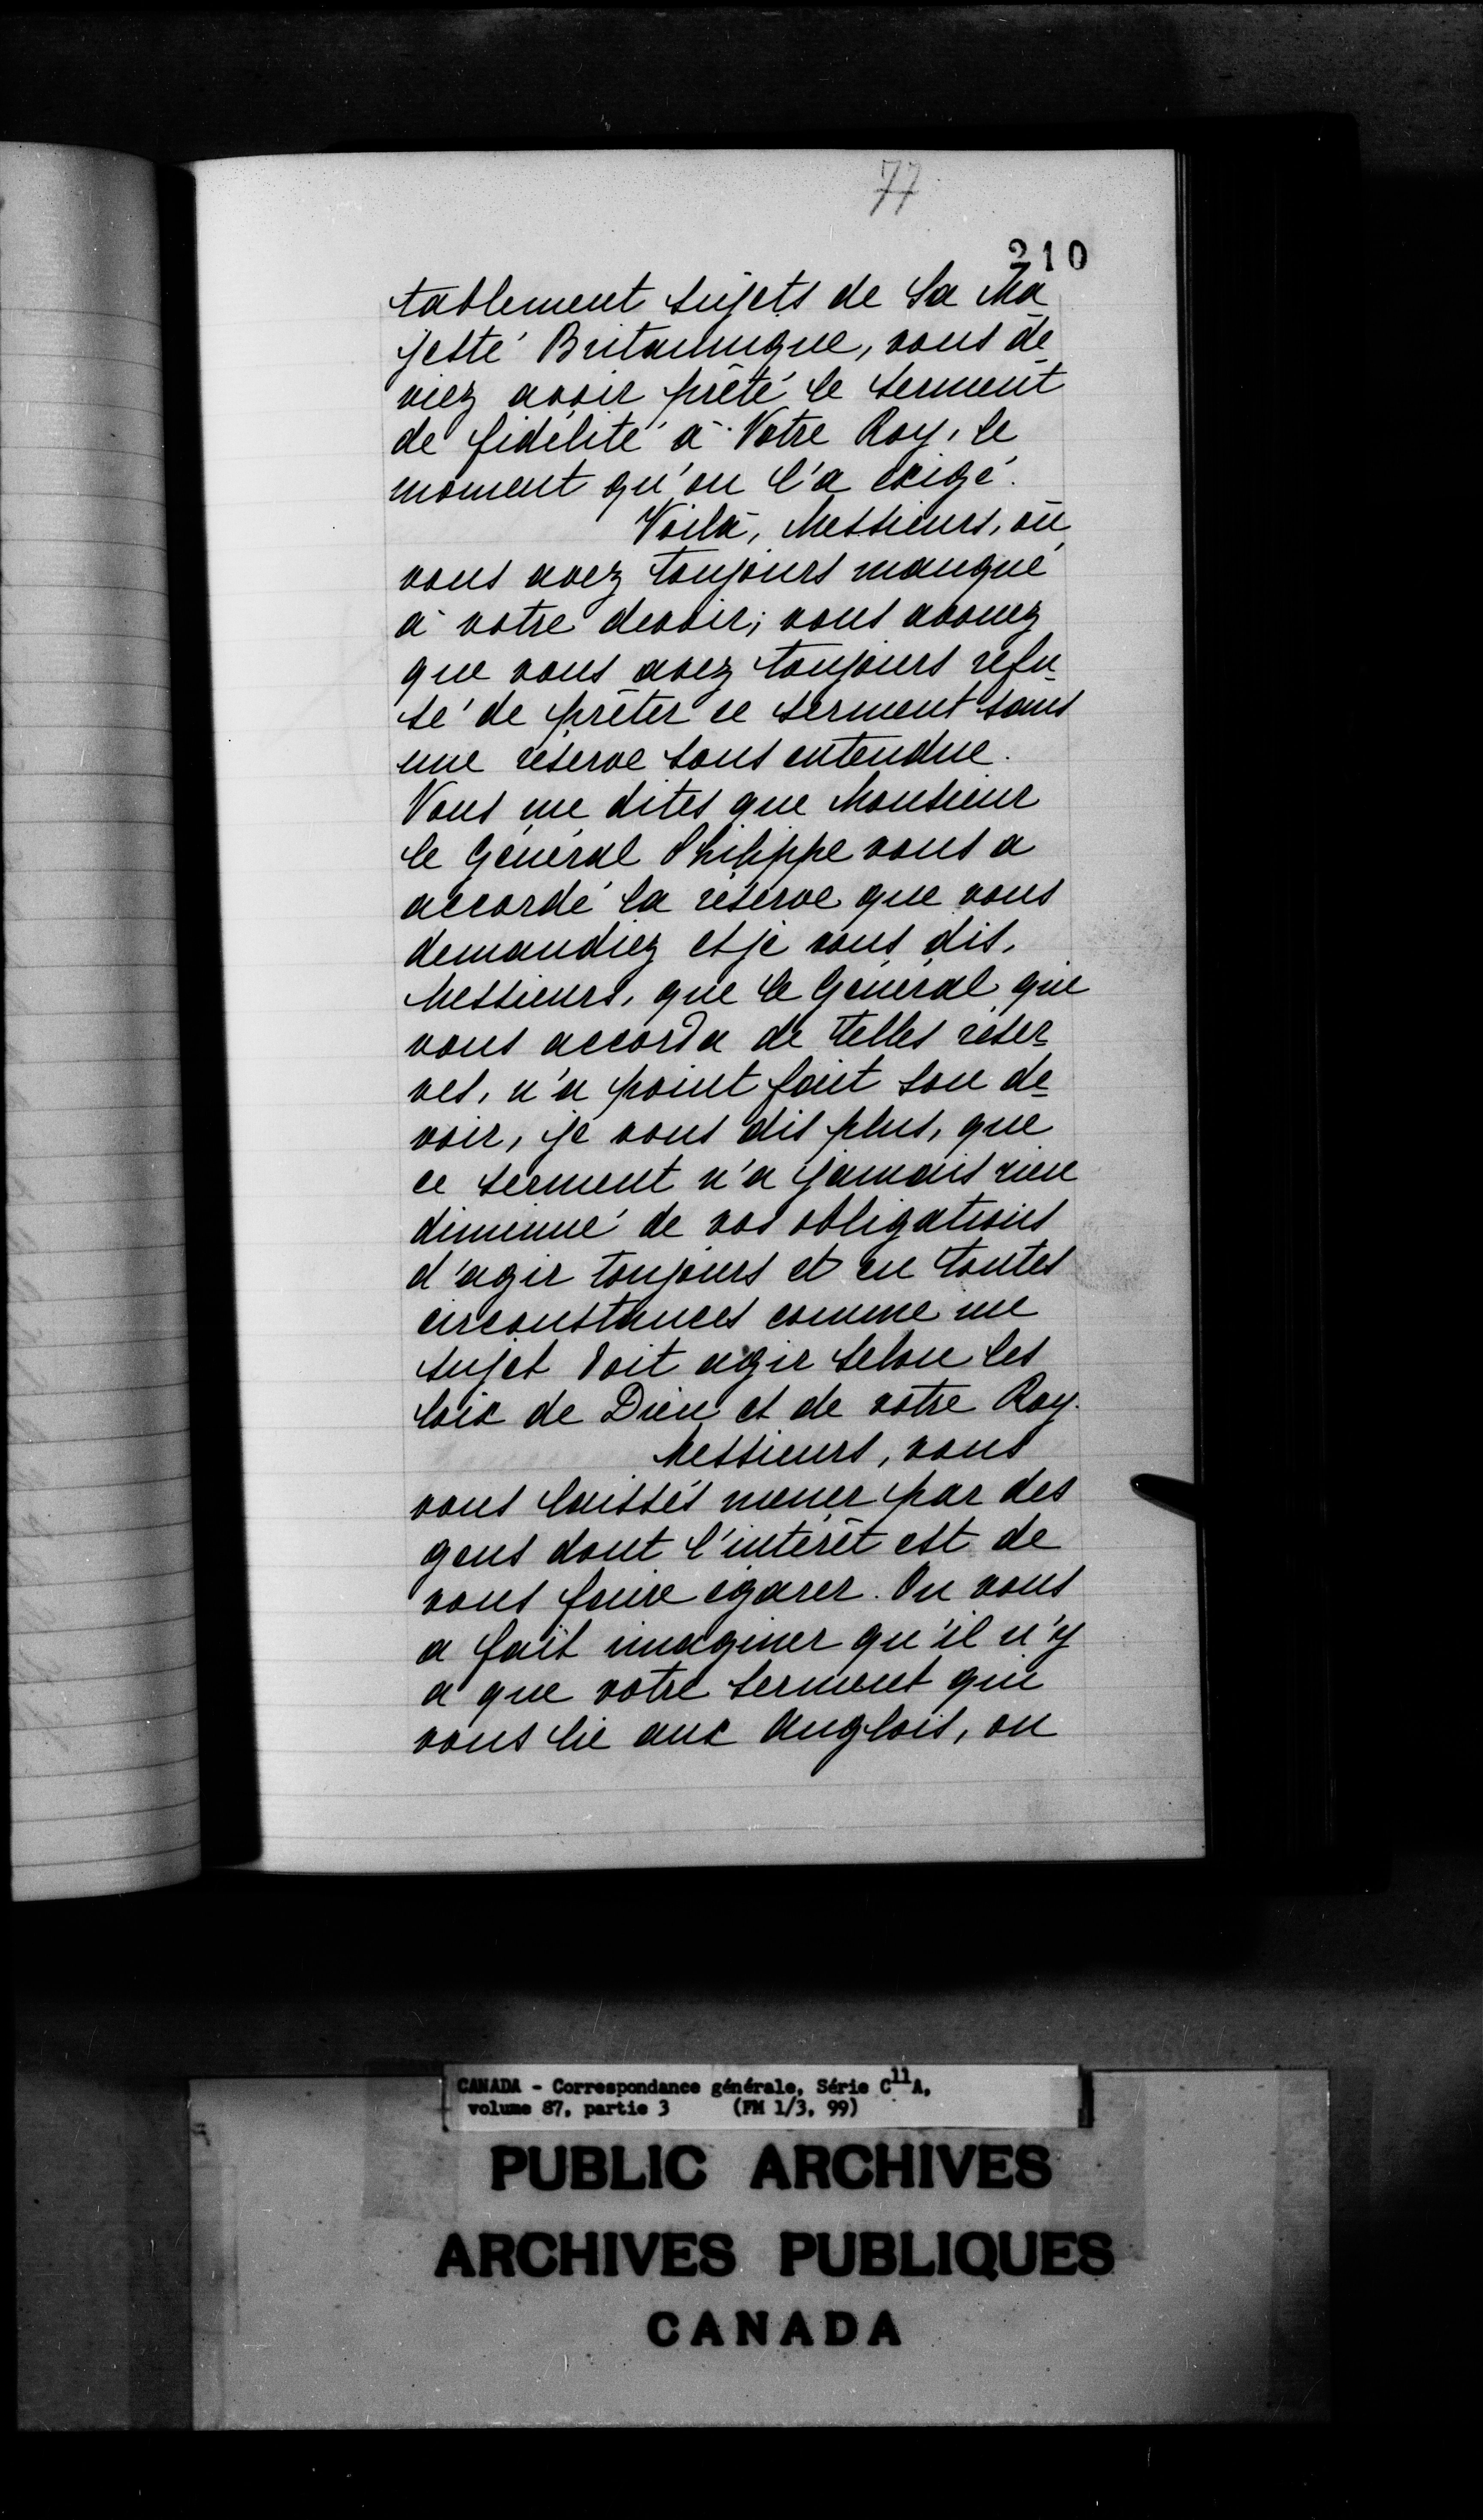 77
210
tablement sujets de Sa Ma
jesté Britannique, vous de
viez avoir prêté le serment
de fidélité à Votre Roy, le
moment qu'on l'a exigé.
Voilà, Messieurs, où
vous avez toujours manqué
à votre devoir; vous avouez
que vous avez toujours refu-
sé de prêter ce serment sans
une réserve sous entendue.
Vous me dites que Monsieur
le Général Philippe vous a
accordé la réserve que vous
demandiez et je vous dis,
Messieurs, que le Général qui
vous accorda de telles réser=
ves, n'a point fait son de=
voir, je vous dis plus, que
ce serment n'a jamais rien
diminué de vos obligations
d'agir toujours et en toutes
circonstances comme un
sujet doit agir selon les
loix de Dieu et de votre Roy.
Messieurs, vous
vous laissés mener par des
gens dont l'intérêt est de
vous faire égarer. On vous
a fait imaginer qu'il n'y
a que votre serment qui
vous lie aux Anglois, on
CANADA - Correspondance générale, Série C11A,
volume 87, partie 3 (FM 1/3, 99)
PUBLIC ARCHIVES
ARCHIVES PUBLIQUES
CANADA